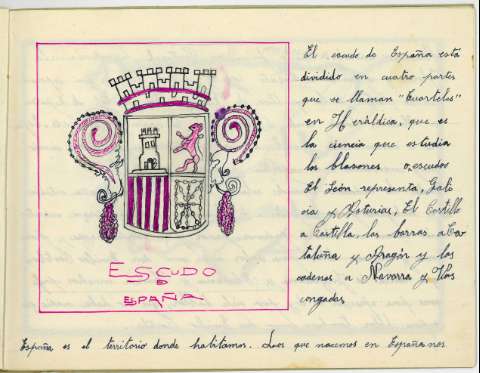 El escudo de España está
dividido en cuatro partes
que se llaman "Cuarteles"
en Heráldica, que es
la ciencia que estudia
los blasones o escudos
El León representa, Gali
cia y Asturias, El Castillo
a Castilla, las barras a Ca
taluña y Aragón y las
cadenas a Navarra y Vas
congadas
ESCUDO
D
ESPAÑA
España es el territorio donde habitamos. Los que nacemos en España nos